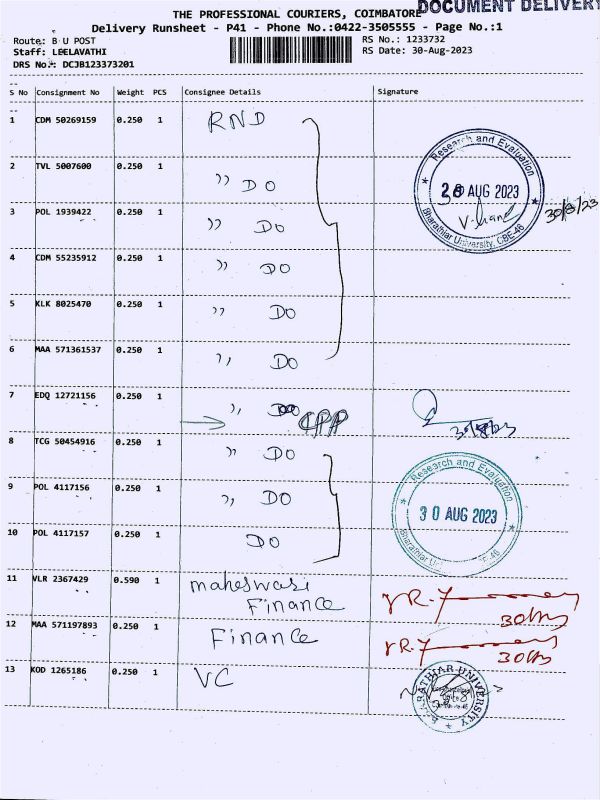 DOCUMENT DELIVERY
THE PROFESSIONAL COURIERS, COIMBATORE
Delivery Runsheet - P41 - Phone No.:0422-3505555 - Page No.:1
Route: B U POST
RS No.: 1233732
Staff: LEELAVATHI
RS Date: 30-Aug-2023
DRS No.: DCJB123373201
S No Consignment No Weight PCS Consignee Details Signature
1 CDM 50269159 0.250 1 RND
Research and Evaluation
28 AUG 2023
Bharathiar University, CBE-46
30/8/23
2 TVL 5007600 0.250 1 ,, DO
3 POL 1939422 0.250 1 ,, DO
4 CDM 55235912 0.250 1 ,, DO
5 KLK 8025470 0.250 1 ,, DO
6 MAA 571361537 0.250 1 ,, DO
7 EDQ 12721156 0.250 1 ,, CPP
8 TCG 50454916 0.250 1 ,, DO
9 POL 4117156 0.250 1 ,, DO
Research and Evaluation
30 AUG 2023
10 POL 4117157 0.250 1 DO
11 VLR 2367429 0.590 1 maheswari
Finance
12 MAA 571197893 0.250 1 Finance
13 KOD 1265186 0.250 1 VC
BHARATHIAR UNIVERSITY